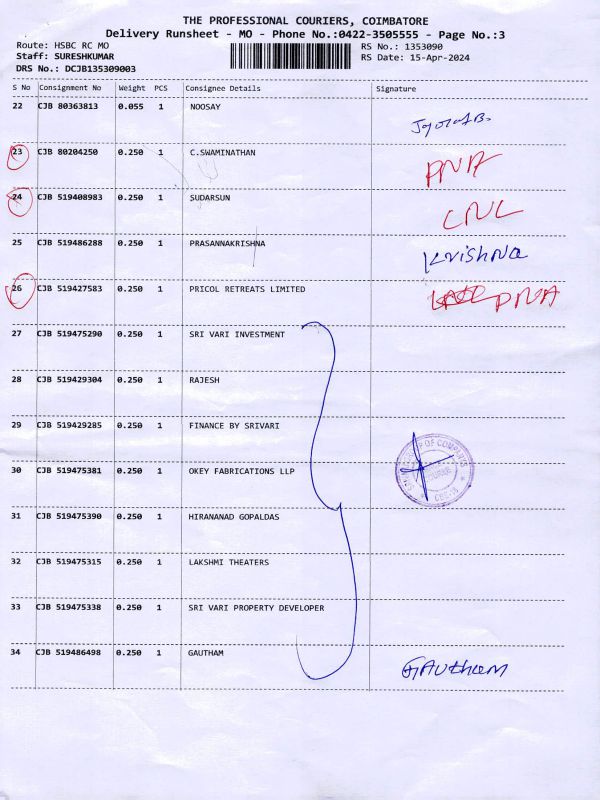 THE PROFESSIONAL COURIERS, COIMBATORE
Delivery Runsheet - MO - Phone No.:0422-3505555 - Page No.:3
Route: HSBC RC MO RS No.: 1353090
Staff: SURESHKUMAR RS Date: 15-Apr-2024
DRS No.: DCJB135309003
S No Consignment No Weight PCS Consignee Details Signature
22 CJB 80363813 0.055 1 NOOSAY
23 CJB 80204250 0.250 1 C.SWAMINATHAN PNA
24 CJB 519408983 0.250 1 SUDARSUN CNL
25 CJB 519486288 0.250 1 PRASANNAKRISHNA Krishna
26 CJB 519427583 0.250 1 PRICOL RETREATS LIMITED PNA
27 CJB 519475290 0.250 1 SRI VARI INVESTMENT
28 CJB 519429304 0.250 1 RAJESH
29 CJB 519429285 0.250 1 FINANCE BY SRIVARI
30 CJB 519475381 0.250 1 OKEY FABRICATIONS LLP
31 CJB 519475390 0.250 1 HIRANANAD GOPALDAS
32 CJB 519475315 0.250 1 LAKSHMI THEATERS
33 CJB 519475338 0.250 1 SRI VARI PROPERTY DEVELOPER
34 CJB 519486498 0.250 1 GAUTHAM GAutham